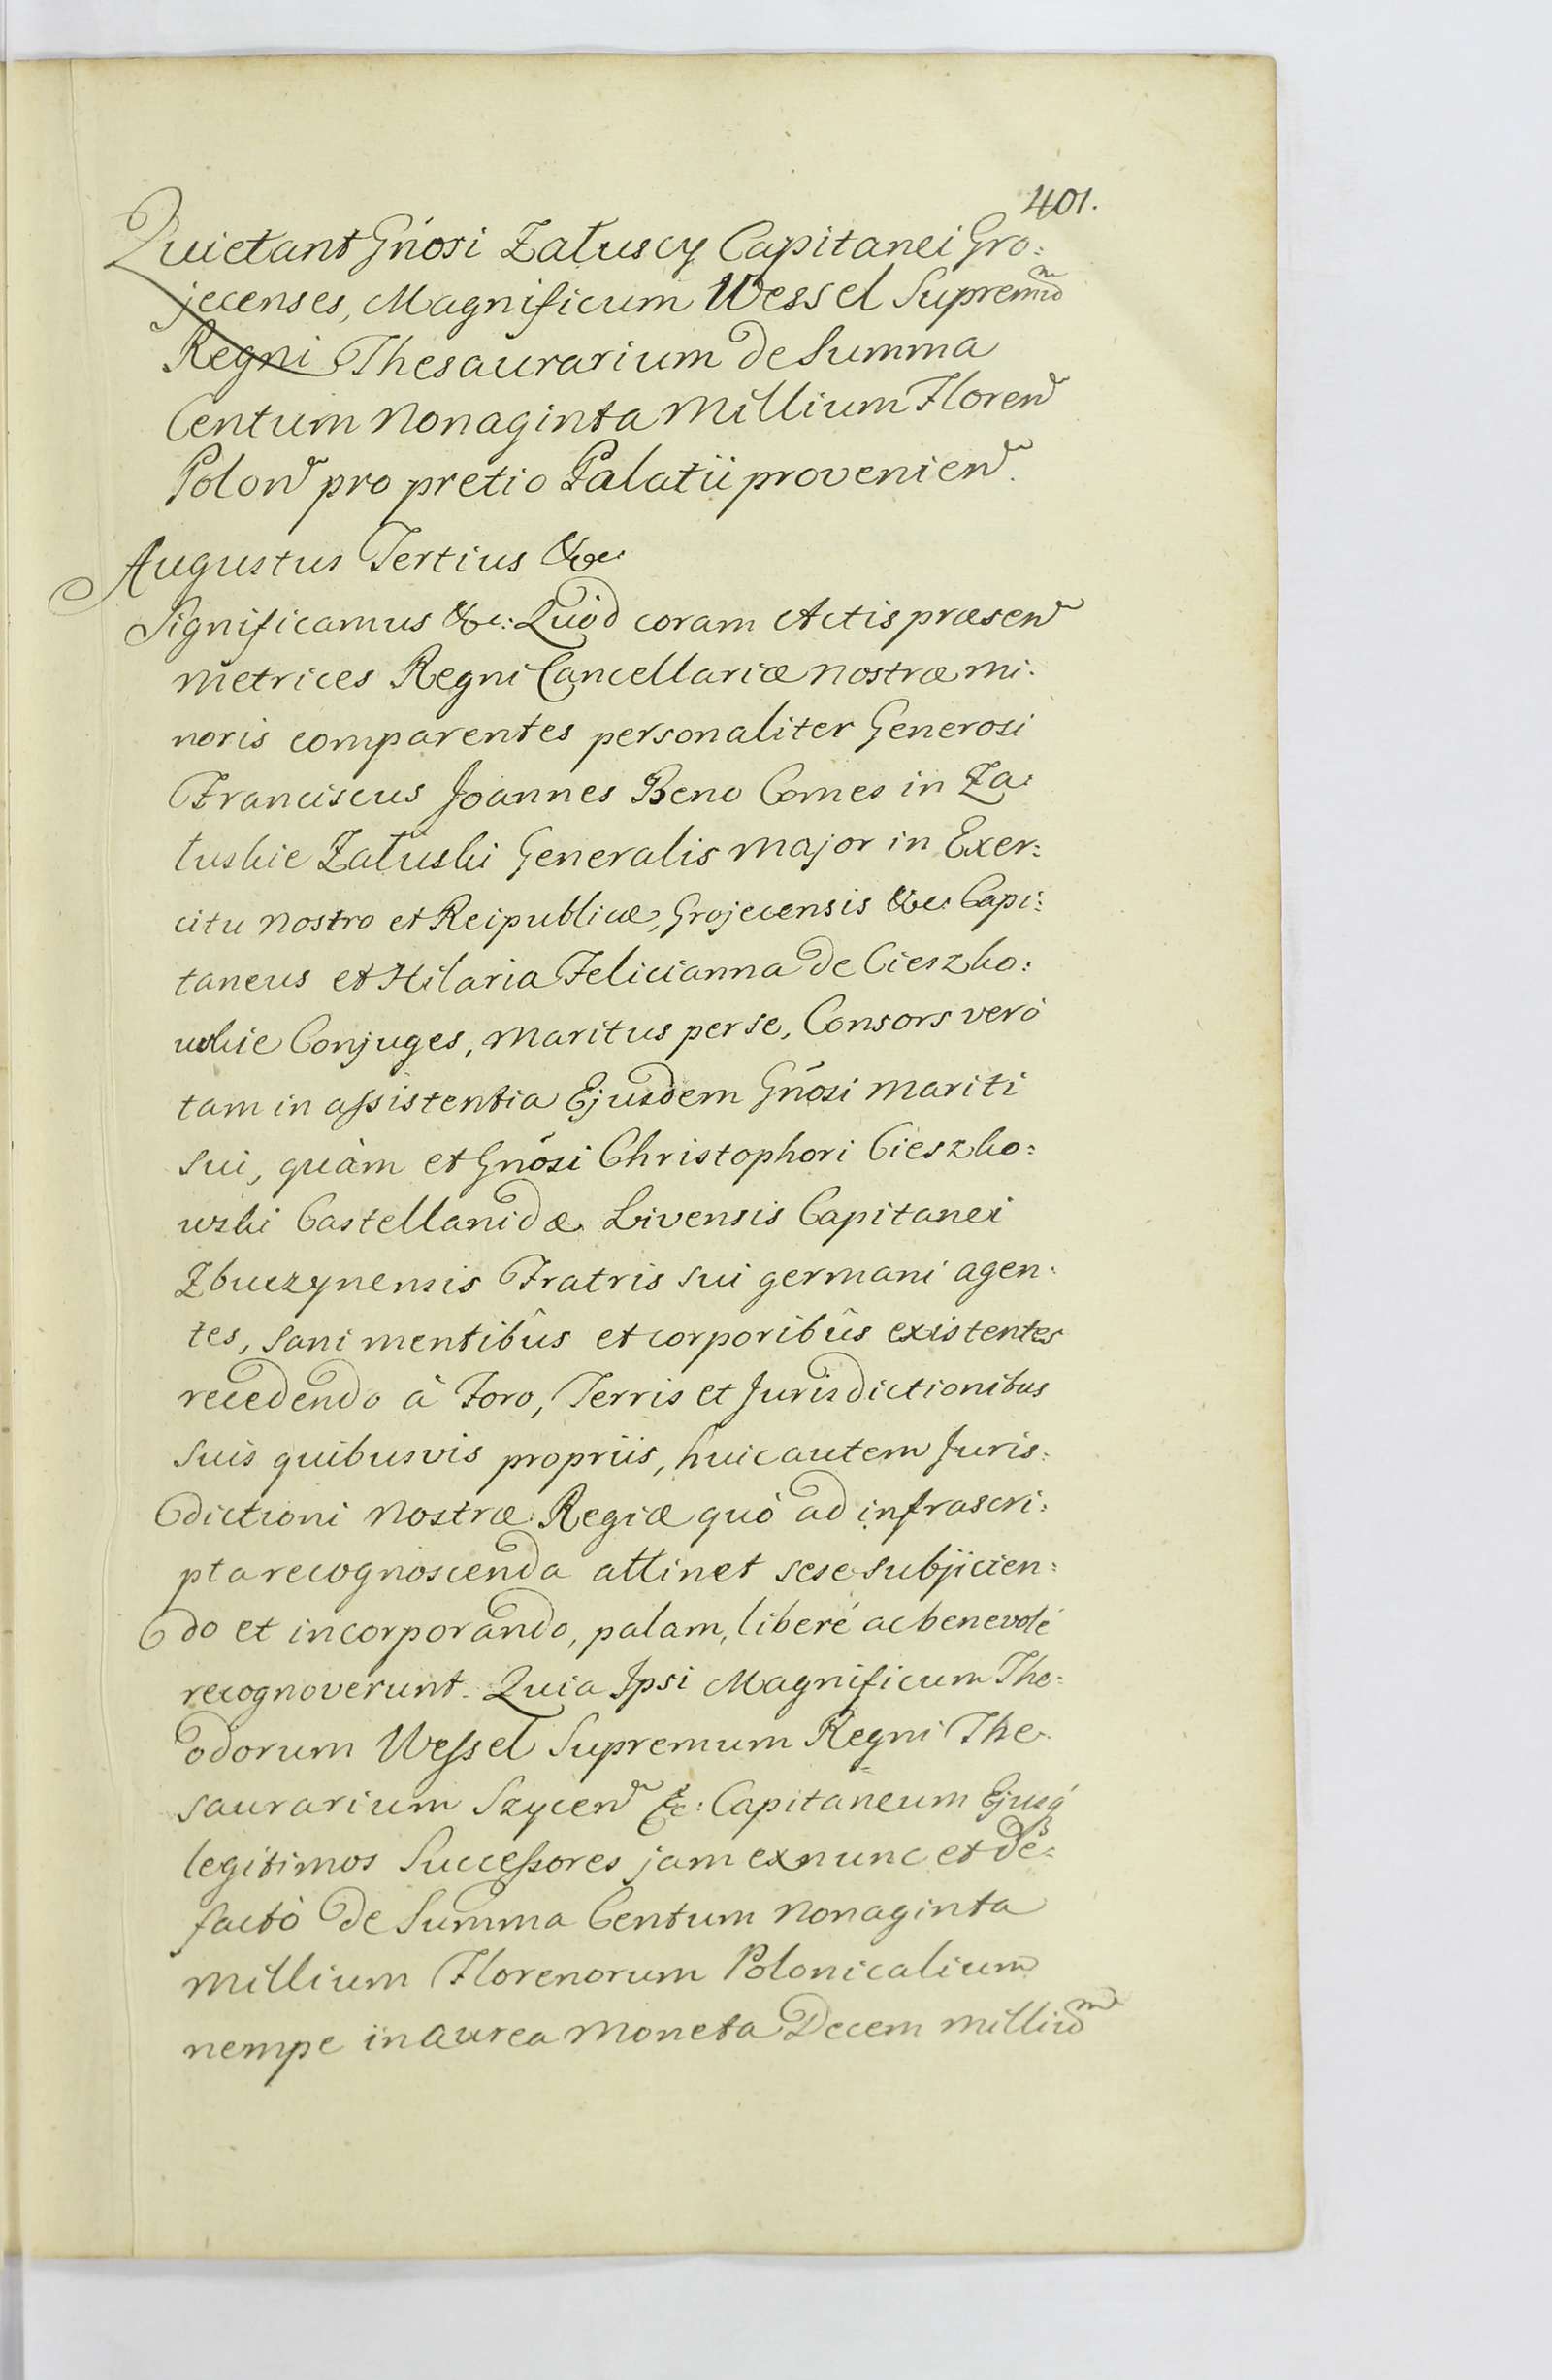 401.
Quietant Gnosi Załuscy Capitanei Gro:
jecenses, Magnificum Wessel Supremũ
Regni Thesaurarium de Summa
Centum Nonaginta Millium Floren
Polon pro pretio Palatii provenien.
Augustus Tertius &c:
Significamus &c: Quód coram Actis præsen
Metrices Regni Cancellariæ Nostræ Mi:
noris comparentes personaliter Generosi
Franciscus Joannes Beno Comes in Za:
łuskie Załuski Generalis Major in Exer:
citu Nostro et Reipublicæ, Grojecensis &c: Capi:
taneus et Hilaria Felicianna de Cieszko:
wskie Conjuges, Maritus per se, Consors veró
tam in assistentia Ejusdem Gnosi Mariti
sui, quàm et Gnosi Christophori Cieszko:
wski Castellanidæ Livensis Capitanei
Zbuczynensis Fratris sui germani agen:
tes, sani mentibûs et corporibûs existentes
recedendo à Foro, Terris et Jurisdictionibus
suis quibusvis propriis, huic autem Juris:
dictioni Nostræ Regiæ quò ad infrascri:
pta recognoscenda attinet sese subjicien:
do et incorporando, palam, liberé ac benevolé
recognoverunt. Quia Ipsi Magnificum The:
odorum Wessel Supremum Regni The:
saurarium Szycen &c: Capitaneum Ejusq́
legitimos Successores jam ex nunc et de:
factò de Summa Centum Nonaginta
Millium Florenorum Polonicalium
nempe in aurea Moneta Decem Milliũ